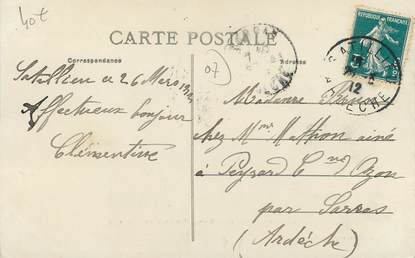 40 €
CARTE POSTALE
Correspondance
Adresse
REPUBLIQUE FRANÇAISE
07
12
ARDECHE
Satillieu ce 26 Mars 1912
Affectueux bonjour
Clémentine
Madame
chez Mr Mathon ainé
à Peyrard Cne Ozon
par Sarras
(Ardèche)